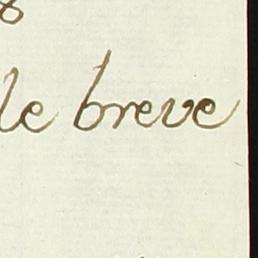 le breve